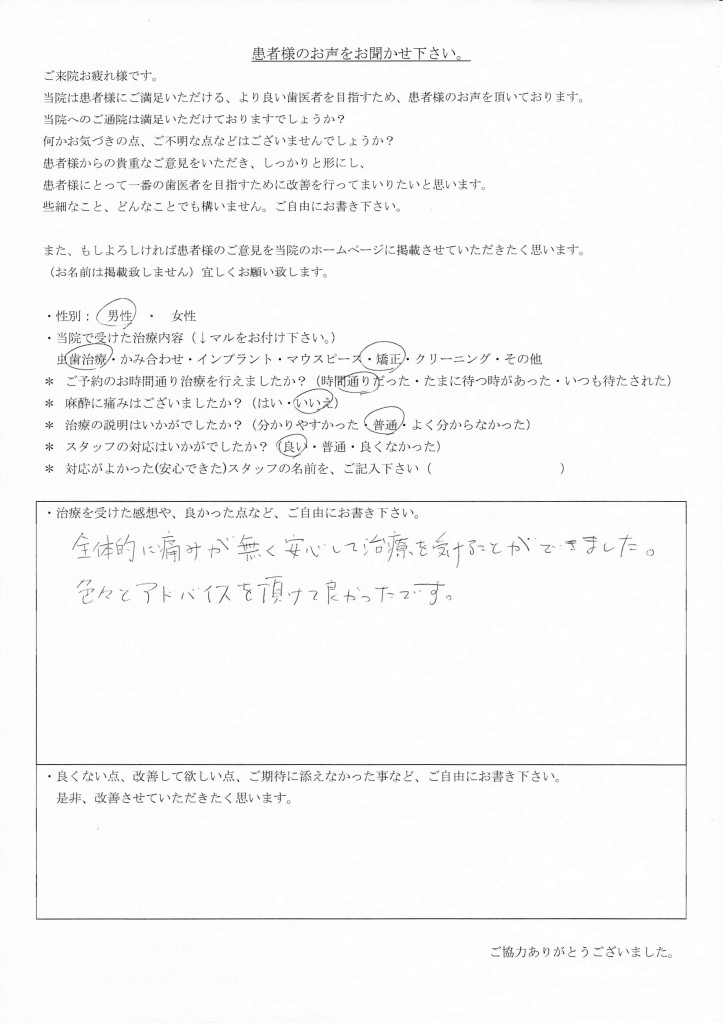 患者様のお声をお聞かせ下さい。
ご来院お疲れ様です。
当院は患者様にご満足いただける、より良い歯医者を目指すため、患者様のお声を頂いております。
当院へのご通院は満足いただけておりますでしょうか？
何かお気づきの点、ご不明な点などはございませんでしょうか？
患者様からの貴重なご意見をいただき、しっかりと形にし、
患者様にとって一番の歯医者を目指すために改善を行ってまいりたいと思います。
些細なこと、どんなことでも構いません。ご自由にお書き下さい。
また、もしよろしければ患者様のご意見を当院のホームページに掲載させていただきたく思います。
（お名前は掲載致しません）宜しくお願い致します。
・性別： 男性 ・ 女性
・当院で受けた治療内容（↓マルをお付け下さい。）
虫歯治療・かみ合わせ・インプラント・マウスピース・矯正・クリーニング・その他
＊ ご予約のお時間通り治療を行えましたか？（時間通りだった・たまに待つ時があった・いつも待たされた）
＊ 麻酔に痛みはございましたか？（はい・いいえ）
＊ 治療の説明はいかがでしたか？（分かりやすかった・普通・よく分からなかった）
＊ スタッフの対応はいかがでしたか？（良い・普通・良くなかった）
＊ 対応がよかった(安心できた)スタッフの名前を、ご記入下さい（ ）
・治療を受けた感想や、良かった点など、ご自由にお書き下さい。
全体的に痛みが無く安心して治療を受けることができました。
色々とアドバイスを頂けて良かったです。
・良くない点、改善して欲しい点、ご期待に添えなかった事など、ご自由にお書き下さい。
是非、改善させていただきたく思います。
ご協力ありがとうございました。